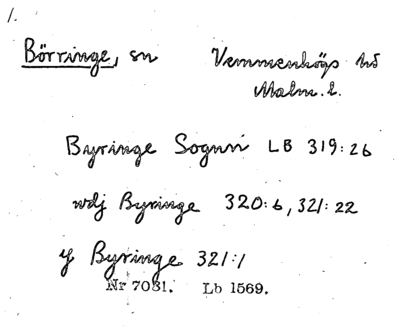 1.
Börringe, sn Vemmenhögs hd
Malm. l.
Byringe Sognn LB 319:26
wdj Byringe 320:6, 321:22
y Byringe 321:1
Nr 7031. Lb 1569.